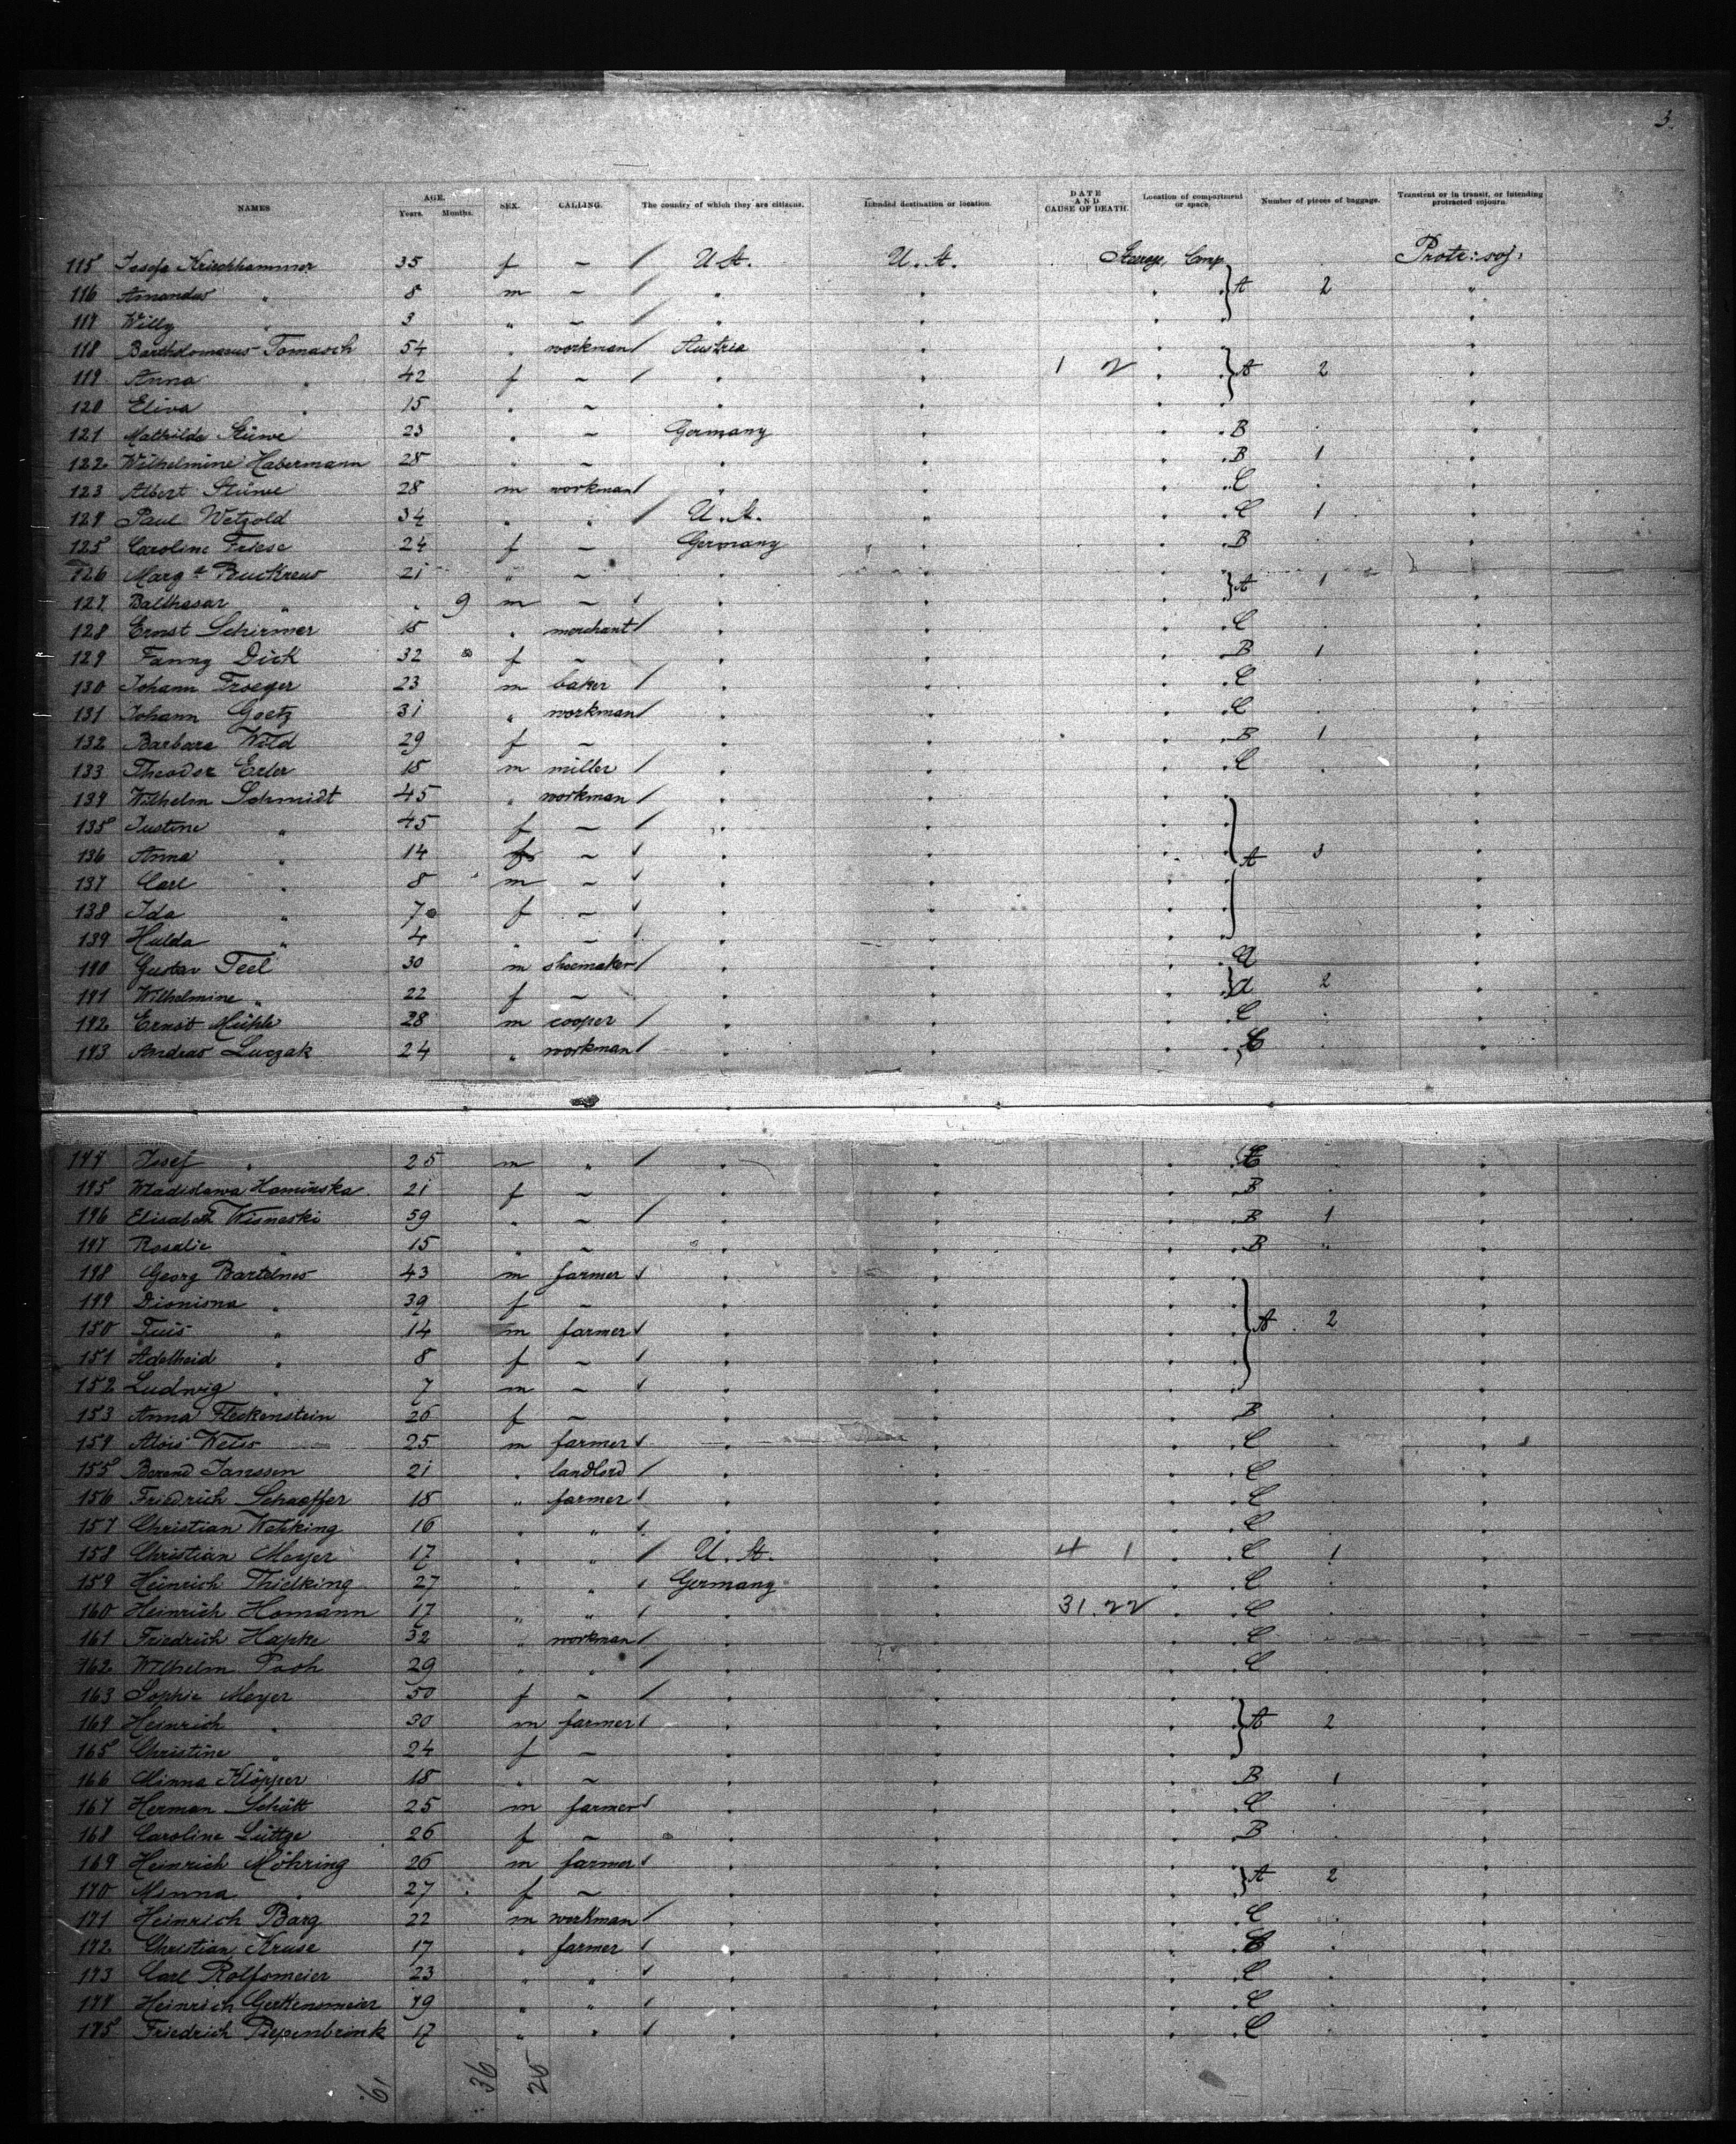 3.
NAMES AGE. Years. Months. SEX. CALLING. The country of which they are citizens. Intended destination or location. DATE AND CAUSE OF DEATH. Location of compartment or space. Number of pieces of baggage. Transient or in transit, or intending protracted sojourn.
115 Josefa Krischhammer 35 f – / U. St. U. St. Steerage Comp. Protr: soj:
116 Amandus " 8 m – / " " " } A 2 "
117 Willy " 3 " – / " " " "
118 Bartholomaeus Tomasch 54 " workman / Austria " " "
119 Anna " 42 f – / " " 1 2 " } A 2 "
120 Elisa " 15 " – " " " "
121 Mathilde Stüwe 23 " – Germany " " B "
122 Wilhelmine Habermann 28 " – " " " B 1 "
123 Albert Stüwe 28 m workman / " " " C "
124 Paul Wetzold 34 " " / U. St. " " C 1 "
125 Caroline Friese 24 f – Germany " " B "
126 Marg a Buckreus 21 " – " " " } A 1 "
127 Balthasar " " 9 m – / " " " "
128 Ernst Schirmer 15 " merchant / " " " C "
129 Fanny Dick 32 f – " " " B 1 "
130 Johann Troeger 23 m baker / " " " C "
131 Johann Goetz 31 " workman / " " " C "
132 Barbara Wild 29 f – " " " B 1 "
133 Theodor Erler 18 m miller / " " " C "
134 Wilhelm Schmidt 45 " workman / " " " "
135 Justine " 45 f – / " " " "
136 Anna " 14 f – / " " " } A 3 "
137 Carl " 8 m – / " " " "
138 Ida " 7 f – / " " " "
139 Hulda " 4 " – / " " " "
140 Gustav Teel 30 m shoemaker / " " " "
141 Wilhelmine " 22 f – " " " } A 2 "
142 Ernst Mühle 28 m cooper / " " " C "
143 Andreas Luczak 24 " workman / " " " C "
144 Josef " 25 m " / " " " C "
145 Wladislawa Haminska 21 f – " " " B "
146 Elisabeth Wisneski 59 " – / " " " B 1 "
147 Rosalie " 15 " – " " " B " "
148 Georg Bartelmes 43 m farmer / " " " "
149 Dionisna " 39 f – " " " "
150 " 14 m farmer / " " " } A 2 "
151 Adelheid " 8 f – / " " " "
152 Ludwig " 7 m – / " " " "
153 Anna Fleckenstein 26 f – " " " B "
154 Alois Weiss 25 m farmer / " " " C "
155 Berend Janssen 21 " landlord / " " " C "
156 Friedrich Schaeffer 18 " farmer / " " " C "
157 Christian Wehking 16 " " / " " " C "
158 Christian Meyer 17 " " / U. St. " 4 1 " C 1 "
159 Heinrich Thielking 27 " " / Germany " " C "
160 Heinrich Homann 17 " " / " " 31. 22 " C "
161 Friedrich Hapke 32 " workman / " " " C "
162 Wilhelm 29 " " / " " " C "
163 Sophie Meyer 50 f – / " " " "
164 Heinrich " 30 m farmer / " " " } A 2 "
165 Christine " 24 f – " " " "
166 Minna Klöpper 18 " – " " " B 1 "
167 Herman Schütt 25 m farmer / " " " C "
168 Caroline Lüttge 26 f – " " " B "
169 Heinrich Möhring 26 m farmer / " " " } A 2 "
170 Minna " 27 f – " " " "
171 Heinrich Barg 22 m workman / " " " C "
172 Christian Kruse 17 " farmer / " " " C "
173 Carl Rolfsmeier 23 " " / " " " C "
174 Heinrich Gerkensmeier 19 " " / " " " C "
175 Friedrich Piepenbrink 17 " " / " " " C "
61 36 25